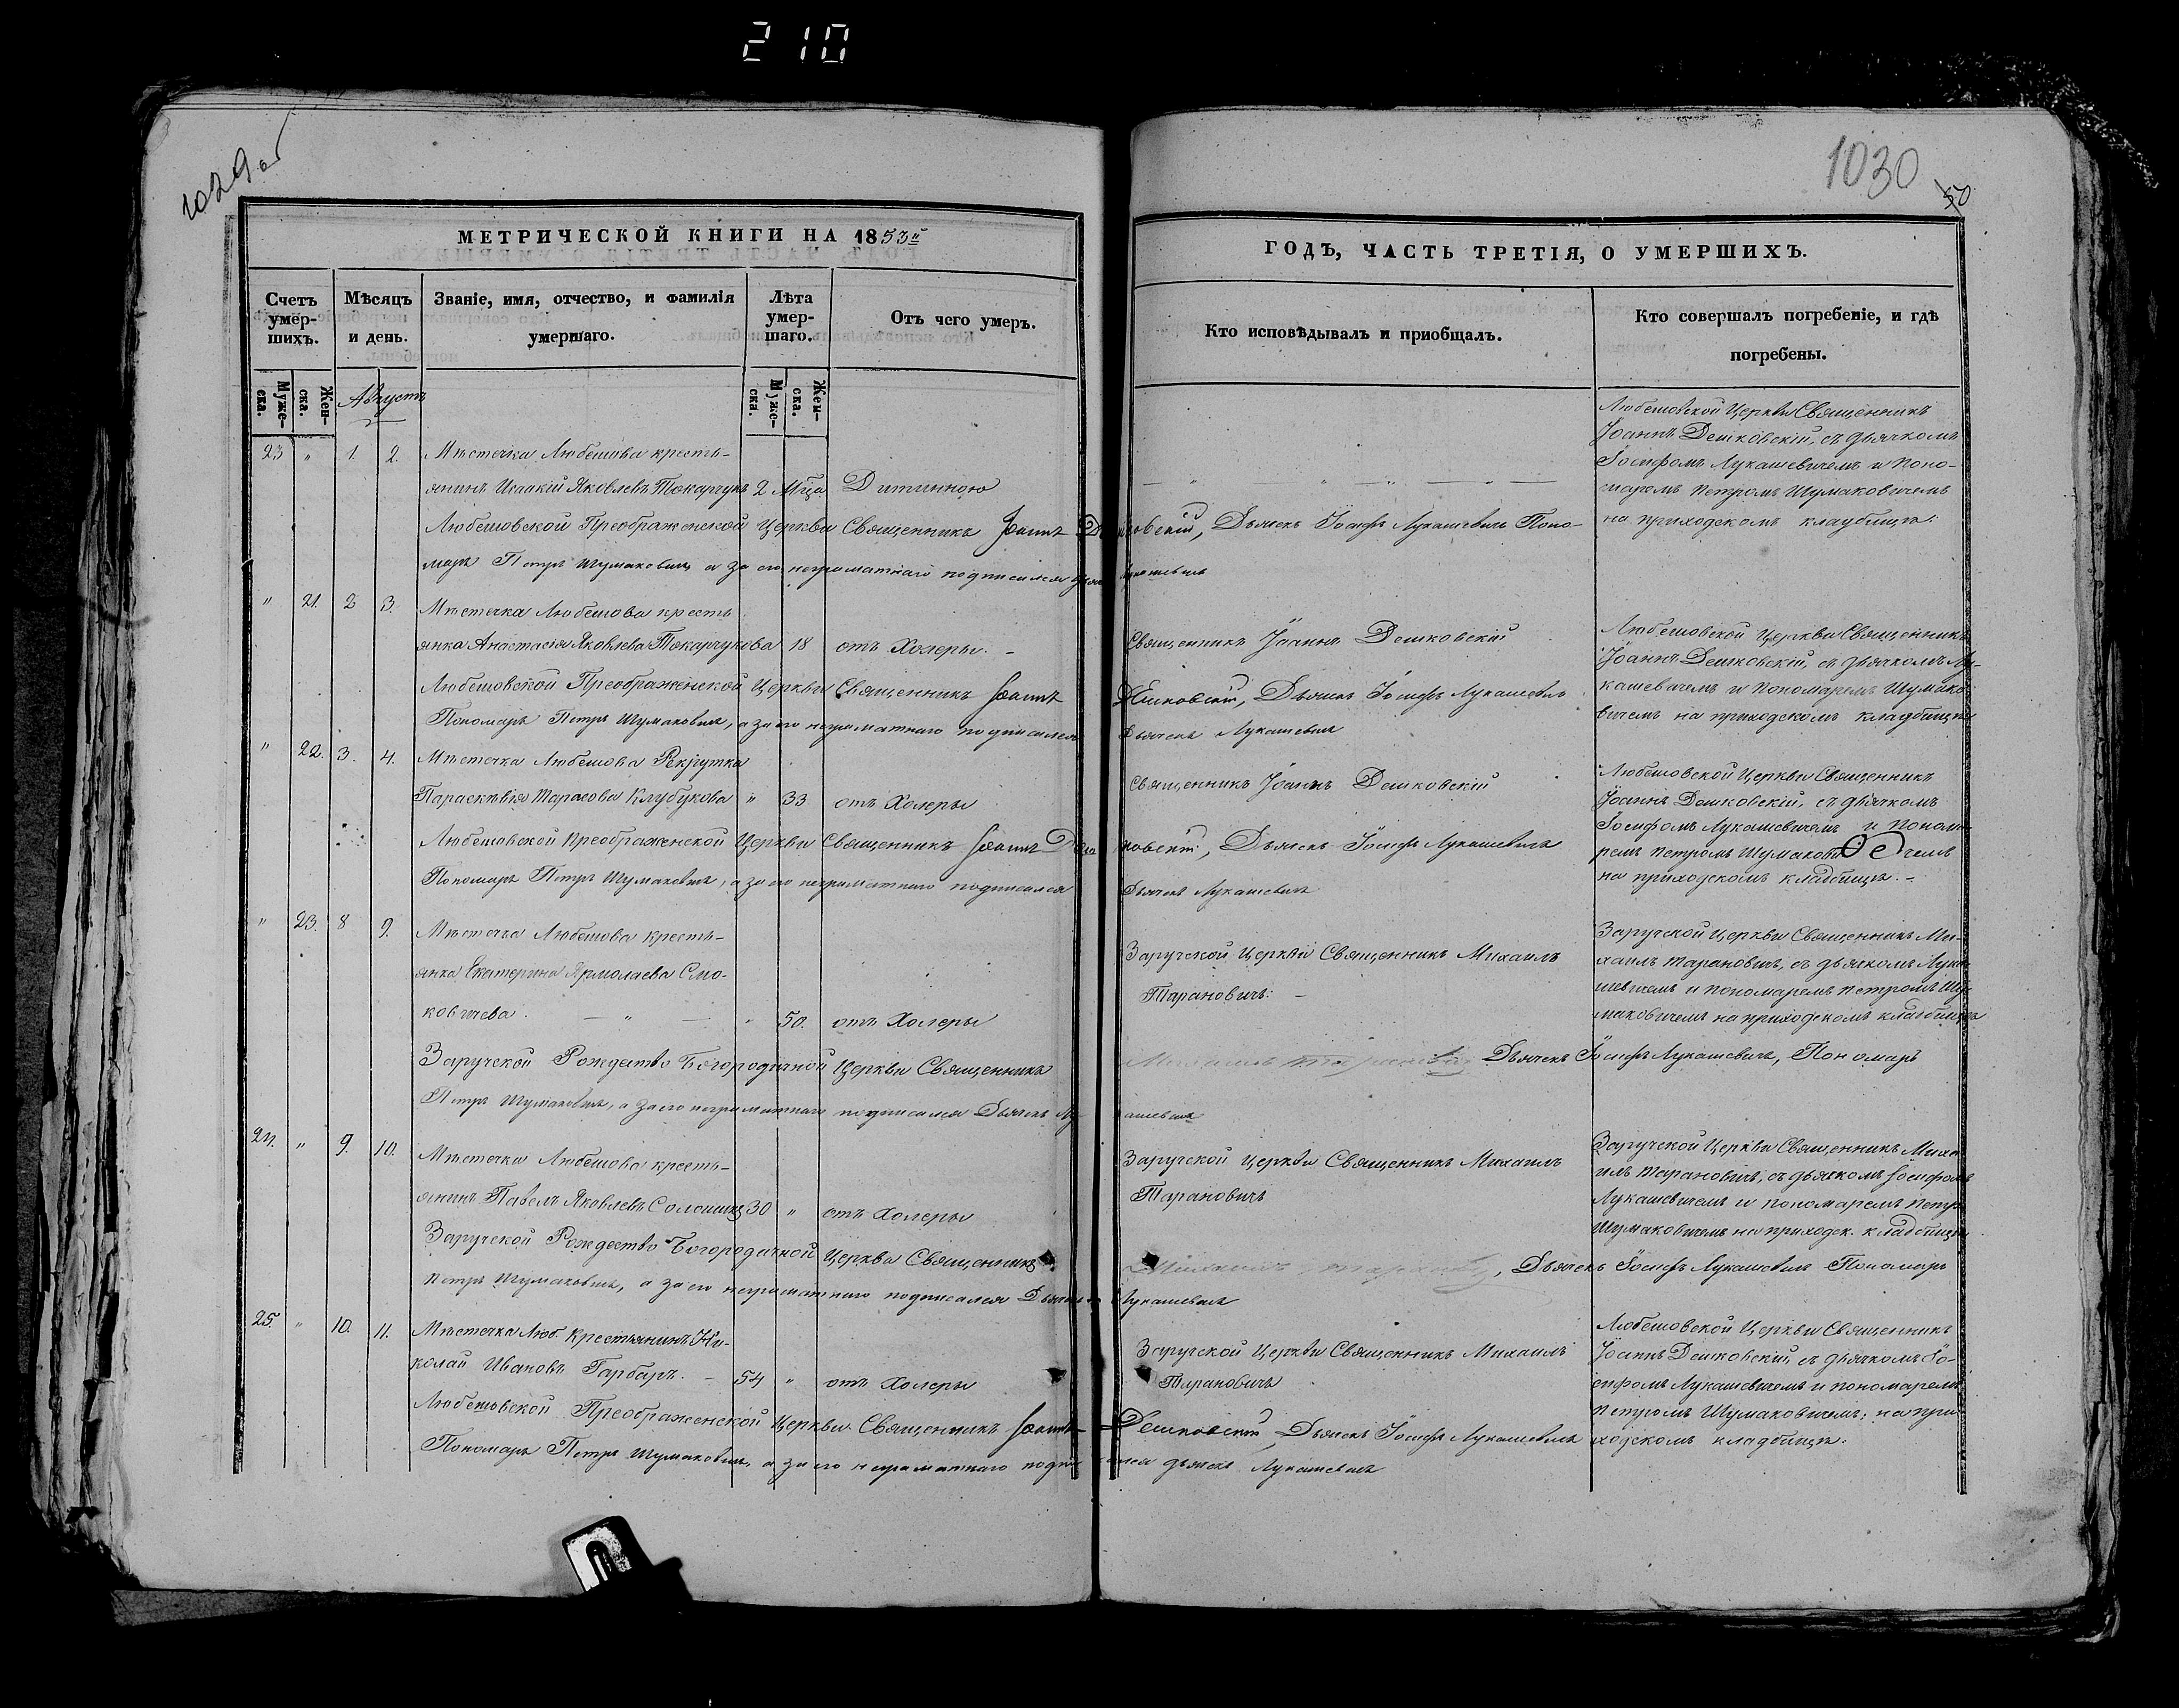 210
1029 об
1030
50
МЕТРИЧЕСКОЙ КНИГИ НА 1853й
ГОДЪ, ЧАСТЬ ТРЕТІЯ, О УМЕРШИХЪ.
Счетъ умер-шихъ.
Мѣсяцъ и день.
Званіе, имя, отчество, и фамилія умершаго.
Лѣта умер-шаго.
Отъ чего умеръ.
Кто исповѣдывалъ и приобщалъ.
Кто совершалъ погребеніе, и гдѣ погребены.
Муже-ска.
Жен-ска.
Августъ
Муже-ска.
Жен-ска.
23 " 1. 2. Мѣстечка Любешова кресть-
янинъ Исаакій Яковлевъ Токарчукъ 2 Мца
Любешовской Церкви Священникъ
Іоаннъ Дешковскій, съ дьячкомъ
Іосифомъ Лукашевичемъ и Поно-
маремъ Петромъ Шумаковичемъ
на приходскомъ кладбищѣ.
Любешовской Преображенской Церкви Священникъ Іоаннъ Дешковскій, Дьячекъ Іосифъ Лукашевичъ Поно-
марь Петръ Шумаковичъ а за его неграматнаго подписался Лукашевичъ
" 21. 2 3. Мѣстечка Любешова кресть
янка Анастасія Яковлева Токарчукова 18 отъ Холеры. –
Священникъ Іоаннъ Дешковскій
Любешовской Церкви Священникъ
Іоаннъ Дешковскій, съ дьячкомъ Лу-
кашевичемъ и Пономаремъ Шумако-
вичемъ на приходскомъ кладбищѣ
Любешовской Преображенской Церкви Священникъ Іоаннъ Дешковскій, Дьячекъ Іосифъ Лукашевичъ
Пономарь Петръ Шумаковичъ, а за его неграматнаго подписался Дьячекъ Лукашевичъ
" 22. 3. 4. Мѣстечка Любешова Рекрутка
Параскѣвія Тарасова Клубукова " 33 отъ Холеры
Священникъ Іоаннъ Дешковскій
Любешовской Церкви Священникъ
Іоаннъ Дешковскій, съ дьячкомъ
Іосифомъ Лукашевичемъ и Понома-
ремъ Петромъ Шумаковичемъ
на приходскомъ кладбищѣ. –
Любешовской Преображенской Церкви Священникъ Іоаннъ Дешковскій, Дьячекъ Іосифъ Лукашевичъ
Пономарь Петръ Шумаковичъ, а за его неграматнаго подписался Дьячекъ Лукашевичъ
" 23. 8 9. Мѣстечка Любешова кресть-
янка Екатерина Ярмолаева Смо-
ковичева. – " – " 50. отъ Холеры
Заручской Церкви Священникъ Михаилъ
Тарановичъ: –
Заручской Церкви Священникъ Ми-
хаилъ Тарановичъ, съ дьячкомъ Лука-
шевичемъ и Пономаремъ Петромъ Шу-
маковичемъ на приходскомъ кладбищѣ
Заручской Рождество Богородичной Церкви Священникъ Михаилъ Тарановичъ Дьячекъ Іосифъ Лукашевичъ, Пономарь
Петръ Шумаковичъ, а за его неграматнаго подписался Дьячекъ Лукашевичъ
24. " 9. 10. Мѣстечка Любешова кресть-
янинъ Павелъ Яковлевъ 30 " отъ Холеры
Заручской Церкви Священникъ Михаилъ
Тарановичъ
Заручской Церкви Священникъ Миха-
илъ Тарановичъ, съ дьячкомъ Іосифомъ
Лукашевичемъ и Пономаремъ Петр.
Шумаковичемъ на приходск. кладбищѣ
Заручской Рождество Богородичной Церкви Священникъ Михаилъ Тарановичъ, Дьячекъ Іосифъ Лукашевичъ Пономарь
Петръ Шумаковичъ, а за его неграматнаго подписался Дьячекъ Лукашевичъ
25. " 10. 11. Мѣстечка Люб. Крестьянинъ Ни-
колай Ивановъ Гарбаръ. – 54 " отъ Холеры
Заручской Церкви Священникъ Михаилъ
Тарановичъ
Любешовской Церкви Священникъ
Іоаннъ Дешковскій, съ дьячкомъ Іо-
сифомъ Лукашевичемъ и Пономаремъ
Петромъ Шумаковичемъ; на при-
ходскомъ кладбищѣ.
Любешовской Преображенской Церкви Священникъ Іоаннъ Дешковскій, Дьячекъ Іосифъ Лукашевичъ
Пономарь Петръ Шумаковичъ, а за его неграматнаго подписался дьячекъ Лукашевичъ